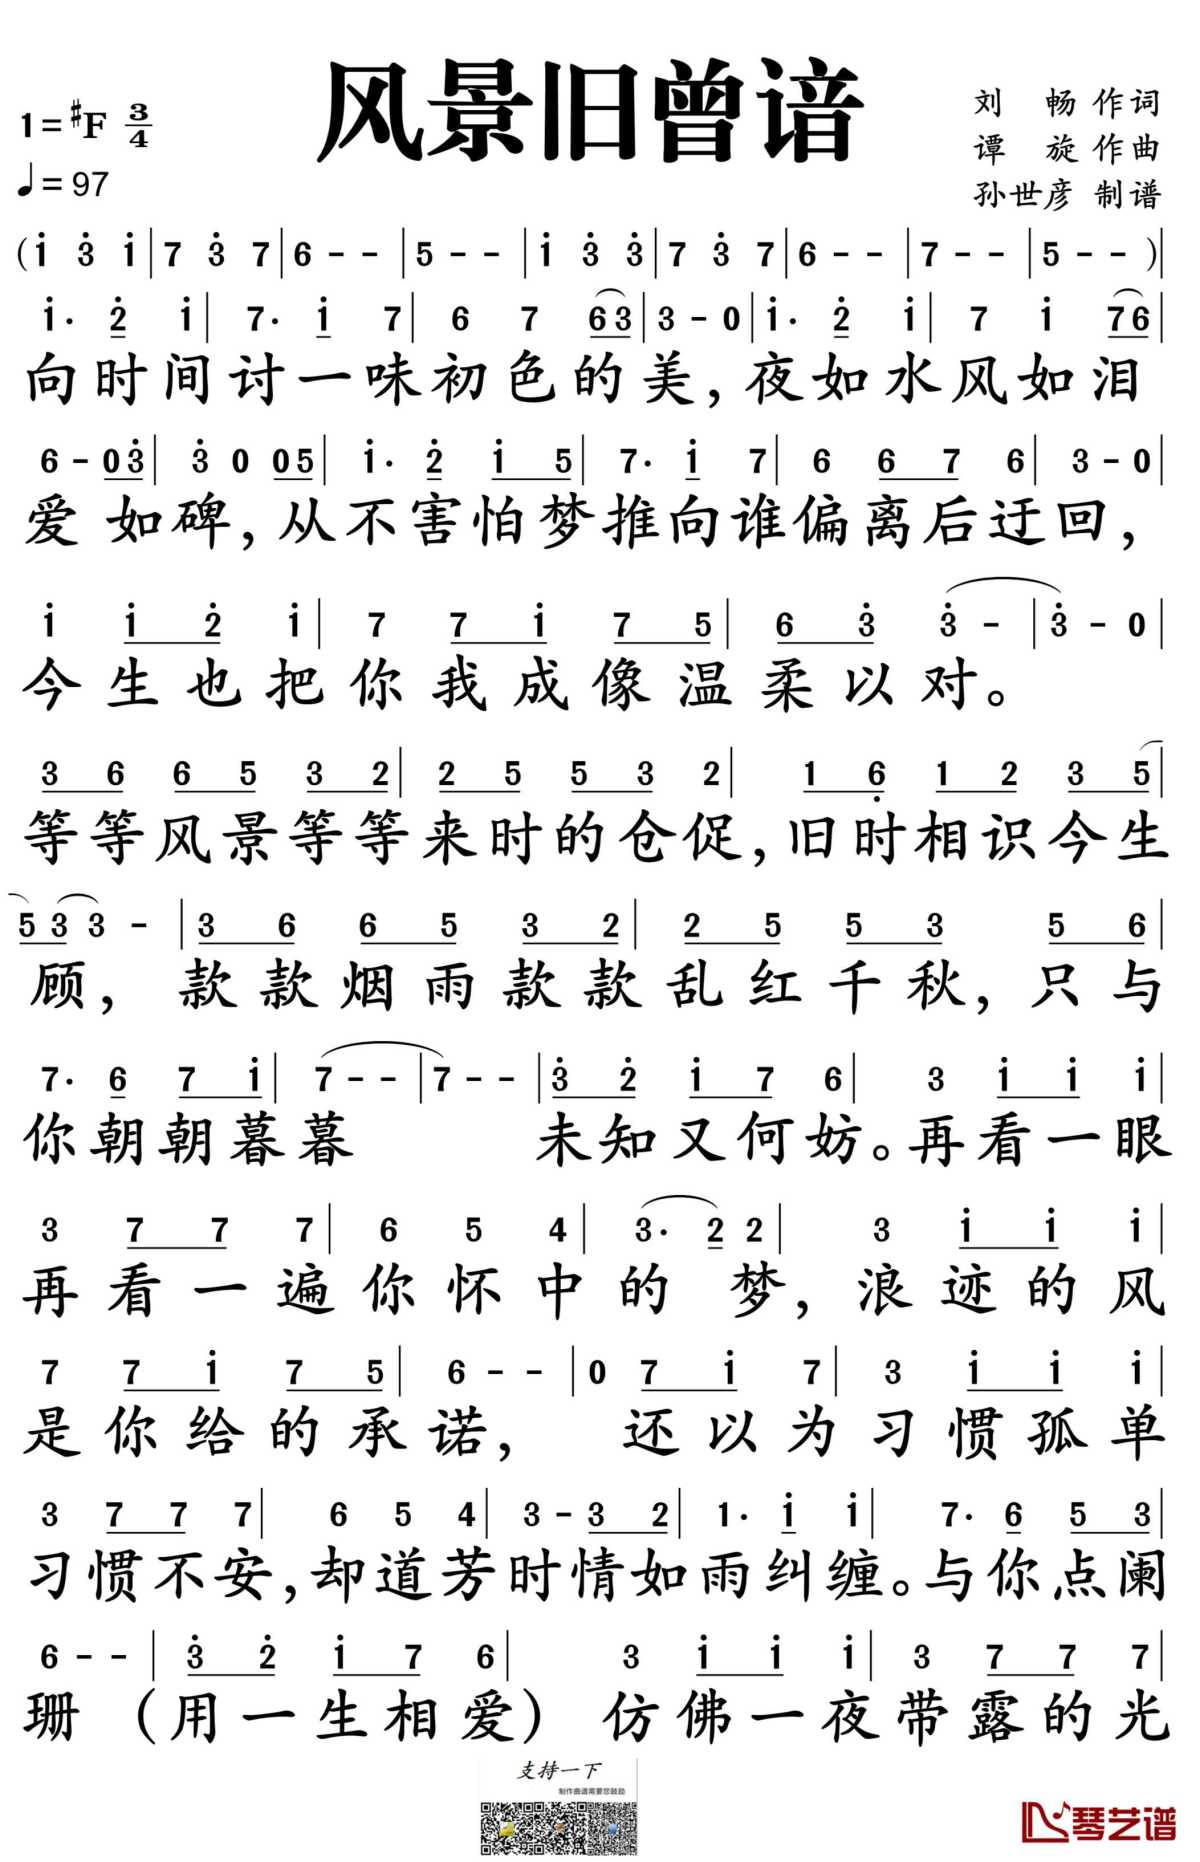 风景旧曾谙
1=#F 3/4
♩=97
刘 畅 作词
谭 旋 作曲
孙世彦 制谱
(i 3̇ i|7 3̇ 7|6 - -|5 - -|i 3̇ 3̇|7 3̇ 7|6 - -|7 - -|5 - -)|
i· 2̇ i|7· i 7|6 7 63|3 - 0|i· 2̇ i|7 i 76|
向时间讨一味初色的美,夜如水风如泪
6 - 03̇|3̇ 0 05|i· 2̇ i 5|7· i 7|6 6 7 6|3 - 0|
爱如碑,从不害怕梦推向谁偏离后迂回,
i i 2̇ i|7 7 i 7 5|6 3̇ 3̇ -|3̇ - 0|
今生也把你我成像温柔以对。
3 6 6 5 3 2|2 5 5 3 2|1 6̣ 1 2 3 5|
等等风景等等来时的仓促,旧时相识今生
5 3 3 -|3 6 6 5 3 2|2 5 5 3 5 6|
顾,款款烟雨款款乱红千秋,只与
7· 6 7 i|7 - -|7 - -|3̇ 2̇ i 7 6|3 i i i|
你朝朝暮暮 未知又何妨。再看一眼
3 7 7 7|6 5 4|3· 2 2|3 i i i|
再看一遍你怀中的梦,浪迹的风
7 7 i 7 5|6 - -|0 7 i 7|3 i i i|
是你给的承诺, 还以为习惯孤单
3 7 7 7|6 5 4|3 - 3 2|1· i i|7· 6 5 3|
习惯不安,却道芳时情如雨纠缠。与你点阑
6 - -|3̇ 2̇ i 7 6|3 i i i|3 7 7 7|
珊(用一生相爱)仿佛一夜带露的光
支持一下
制作曲谱需要您鼓励
琴艺谱